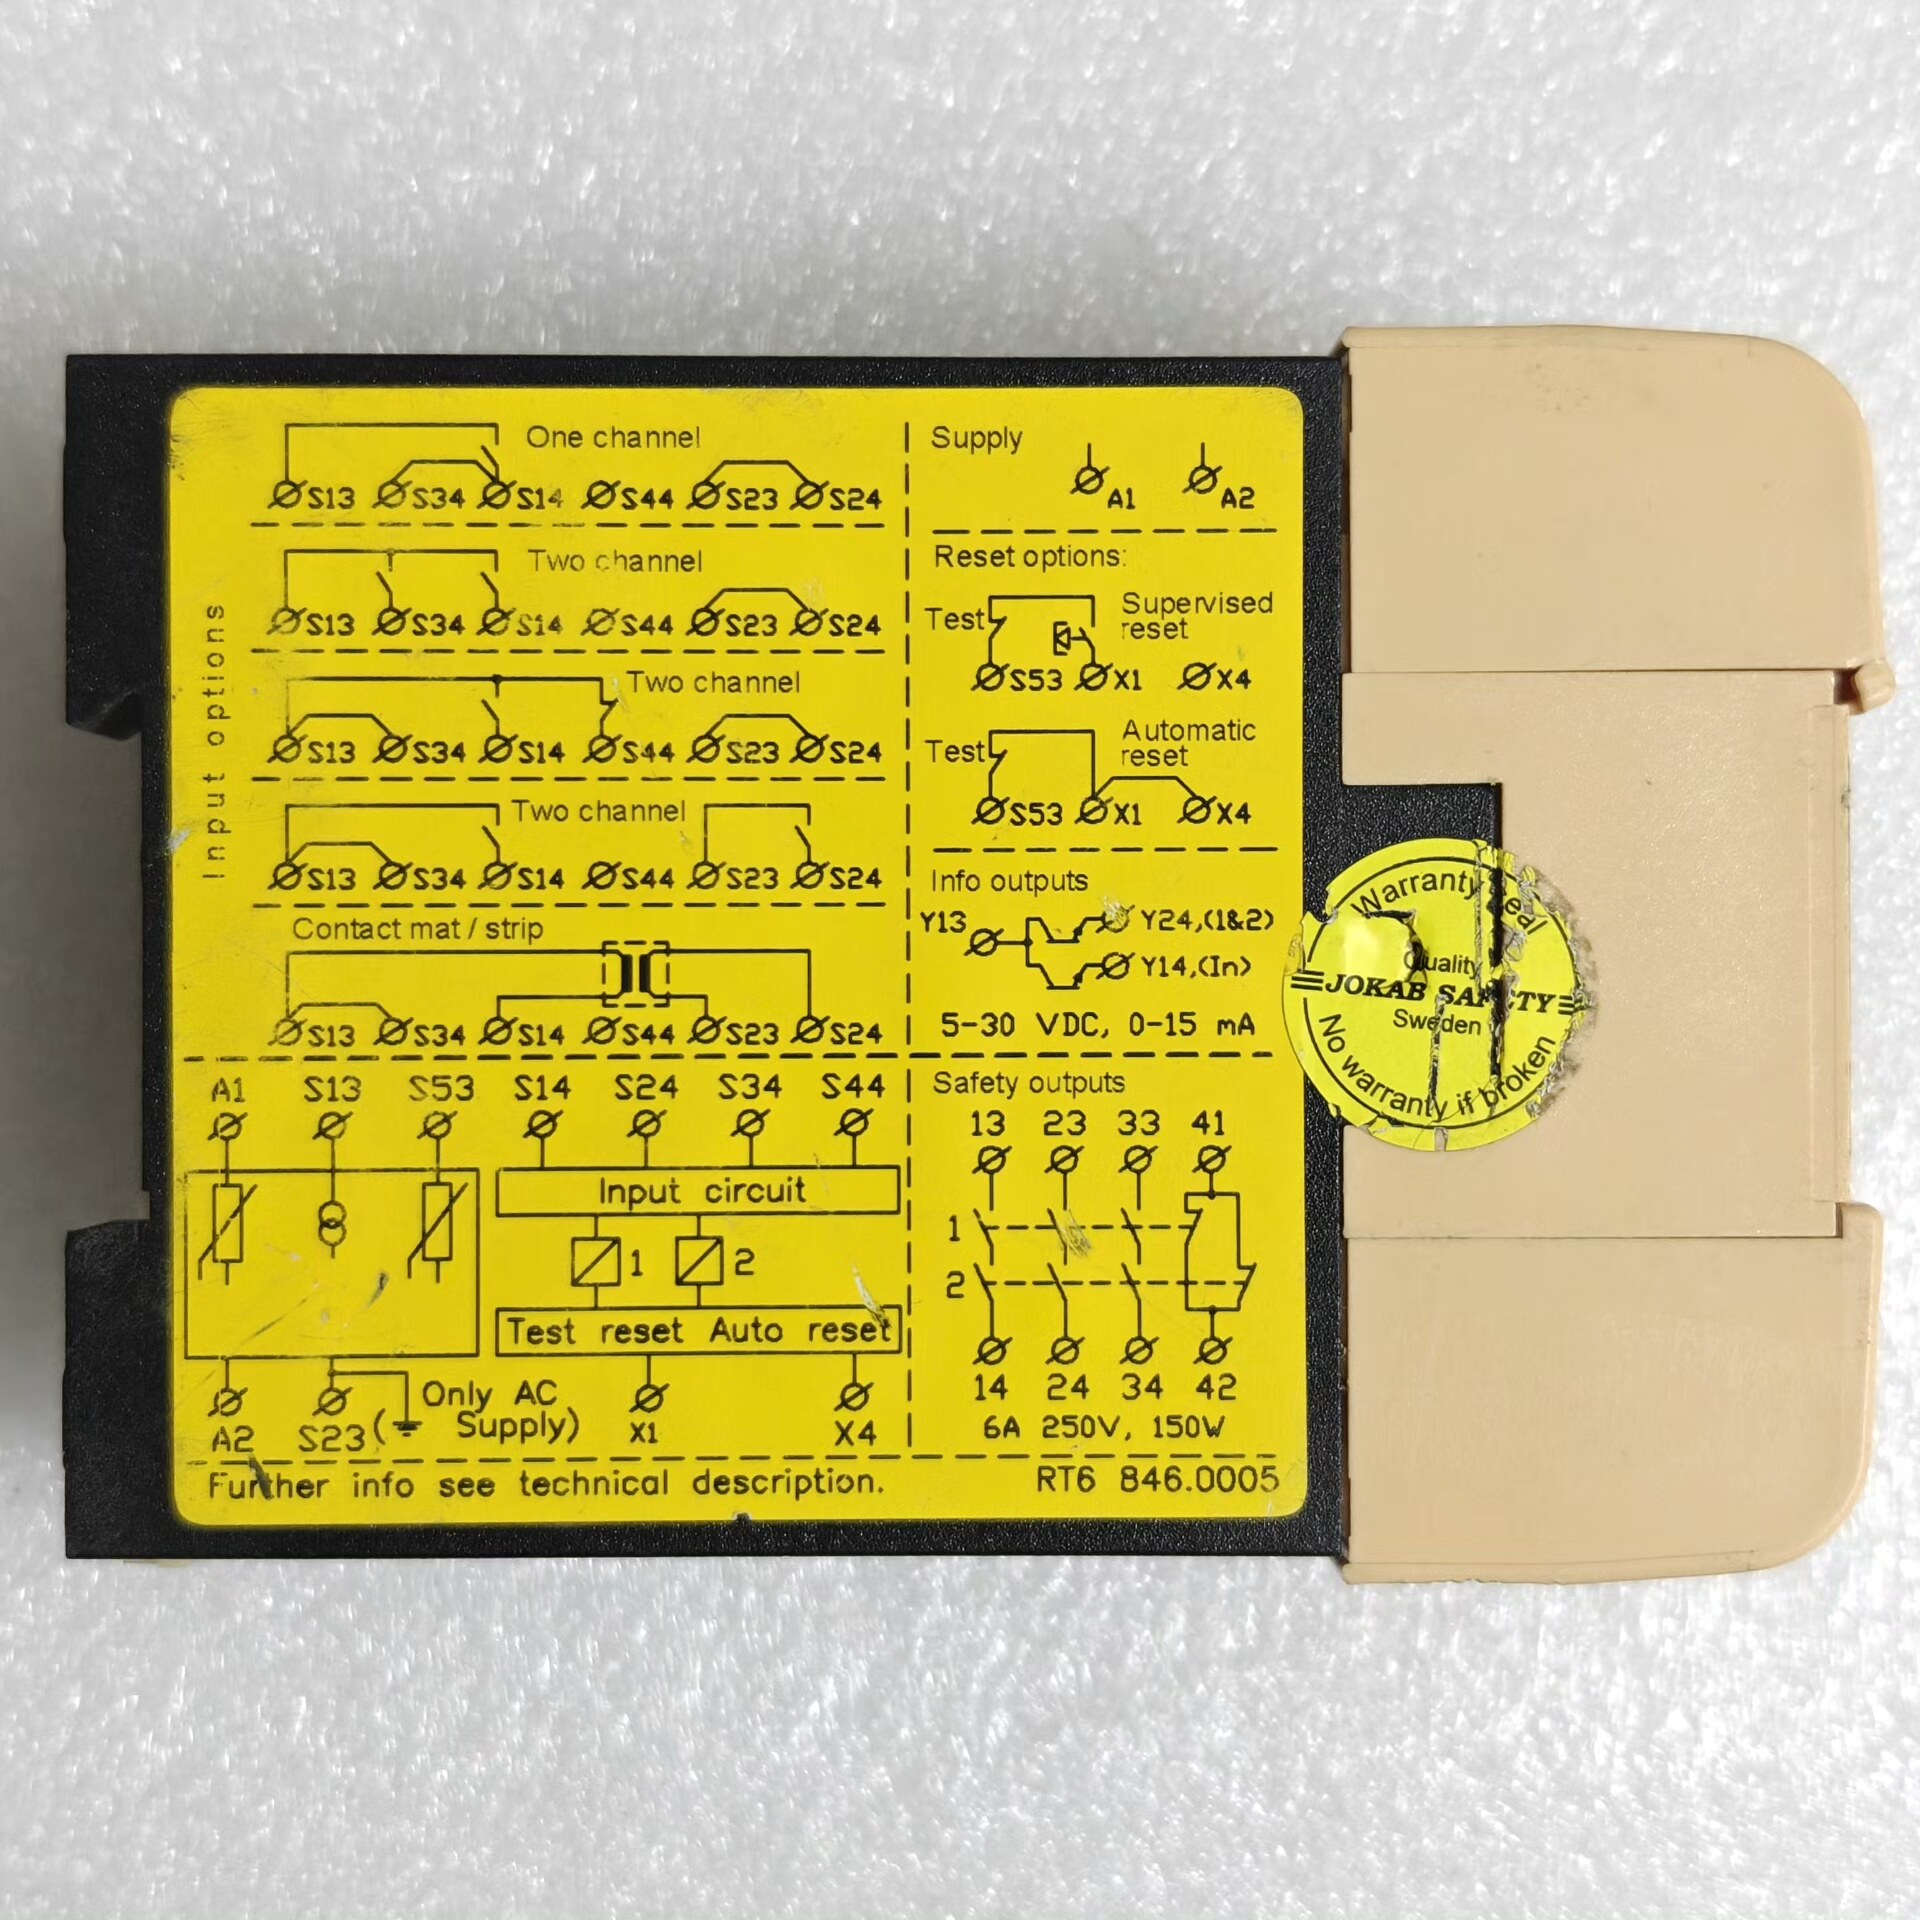 One channel
S13 S34 S14 S44 S23 S24
Two channel
S13 S34 S14 S44 S23 S24
Two channel
S13 S34 S14 S44 S23 S24
Two channel
S13 S34 S14 S44 S23 S24
Contact mat / strip
S13 S34 S14 S44 S23 S24
Input options
Supply
A1 A2
Reset options:
Test Supervised
reset
S53 X1 X4
Test Automatic
reset
S53 X1 X4
Info outputs
Y13 Y24,(1&2)
Y14,(In)
5-30 VDC, 0-15 mA
A1 S13 S53 S14 S24 S34 S44
Input circuit
1 2
Test reset Auto reset
Only AC
Supply)
A2 S23( X1 X4
Safety outputs
13 23 33 41
1
2
14 24 34 42
6A 250V, 150W
Further info see technical description. RT6 846.0005
Warranty Seal
Quality
JOKAB SAFETY
Sweden
No warranty if broken